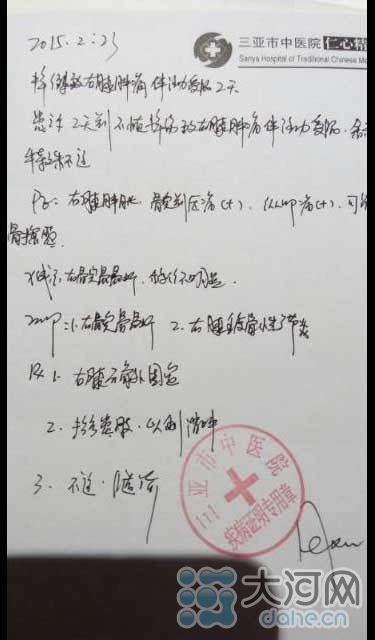 三亚市中医院 仁心精
Sanya Hospital of Traditional Chinese Me
2015.2.23
右膝肿痛伴活动受限2天
2天前不慎摔伤致右膝肿痛伴活动受限,
特殊不适
右膝肿胀, 压痛(+), 叩痛(+), 可
骨擦感.
X线示:右髌骨骨折, 移位不明显
imp:1.右髌骨骨折 2.右膝
Rx 1. 右膝石膏外固定
2. 抬高患肢,以利消肿
3. 不适,随诊
三亚市中医院
疾病证明专用章
大河网
dahe.cn